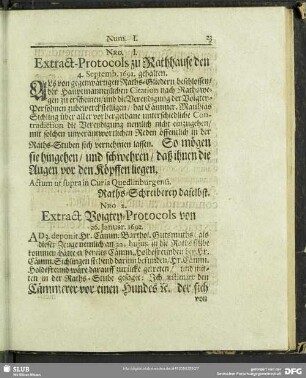 Num. I.
23
Nro. I.
Extract-Protocols zu Rathhause den
4. Septemb. 1691. gehalten.
Als von gegenwärtigen Raths-Gliedern beschlossen/
der Hauptmannlichen Citation nach Rathswegen
zu erscheinen/ und die Vereydigung der Voigtey-
Persohnen zu bewerckstelligen/ hat Cämmer. Matthias
Stehling über aller vorher gethane unterschiedliche Con-
tradiction die Vereydigung nemlich nicht einzugehen/
mit solchen unverantwortlichen Reden öffentlich in der
Raths-Stuben sich vernehmen lassen. So mögen
sie hingehen/ und schwehren/ daß ihnen die
Augen vor den Köpffen liegen.
Actum ut supra in Curia Quedlinburgensi.
Raths-Schreiberey daselbst.
Nro 2.
Extract Voigtey-Protocols von
26. Januar. 1692.
deponit. Hr. Cämm. Barthol. Gutzmuths als
dieser Zeuge nemlich am 20. hujus in die Raths-Stube
kommen/ hätte er bereits Cämm. Holdefreunden
Cämm. Stehlingen stehend darinn befunden/ Hr. Cämm.
Holdefreund wäre darauff zurücke getreten/ und mit-
ten in der Raths-Stube gesaget: Ich
Cämmerer vor einen Hundes ec. der sich
von
SLUB
Wir führen Wissen.
gefördert von der
Deutschen Forschungsgemeinschaft
DFG